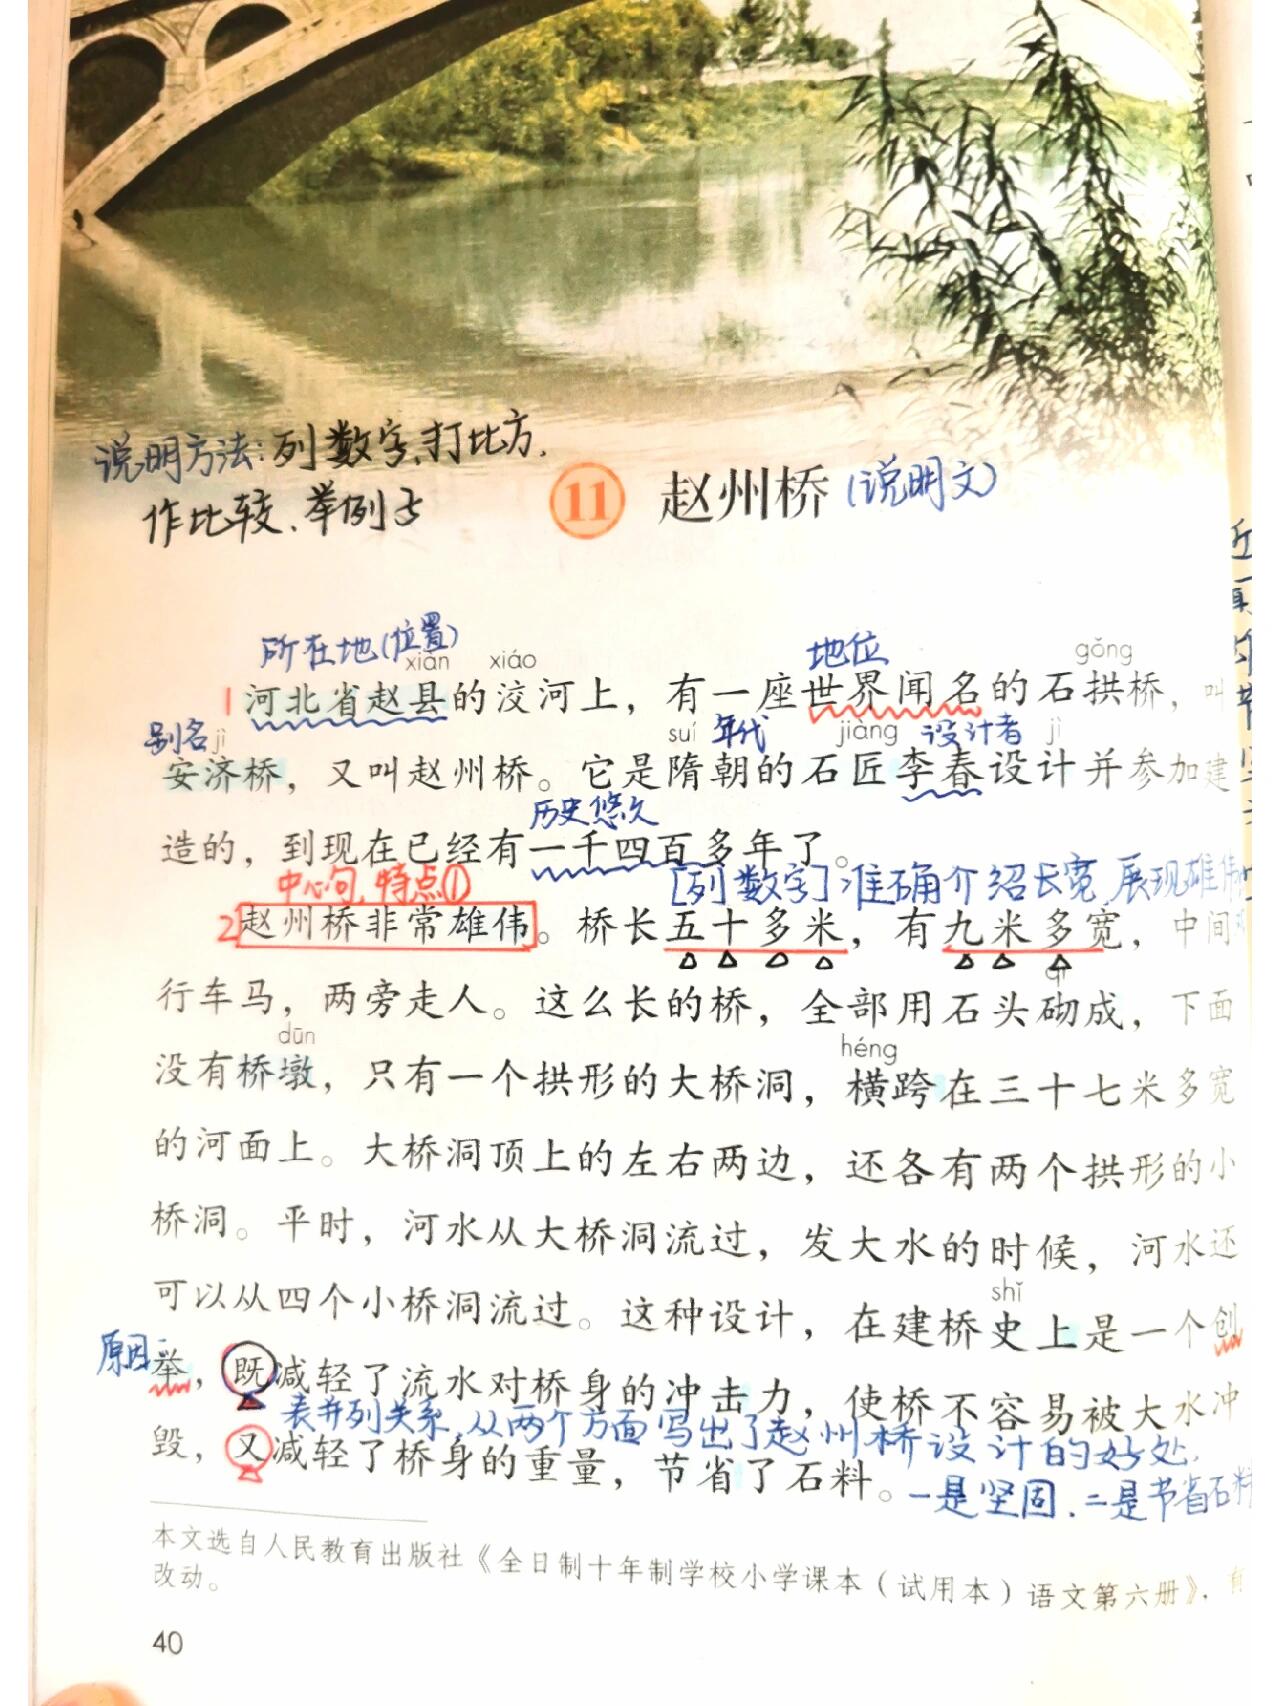 说明方法:列数字、打比方、
作比较、举例子
11 赵州桥(说明文)
所在地(位置) 地位
xiàn xiáo gǒng
1 河北省赵县的洨河上，有一座世界闻名的石拱桥，叫
别名 jì suí 年代 jiàng 设计者 jì
安济桥，又叫赵州桥。它是隋朝的石匠李春设计并参加建
历史悠久
造的，到现在已经有一千四百多年了。
中心句,特点① [列数字]准确介绍长宽,展现雄伟
2 赵州桥非常雄伟。桥长五十多米，有九米多宽，中间
qì
行车马，两旁走人。这么长的桥，全部用石头砌成，下面
dūn héng
没有桥墩，只有一个拱形的大桥洞，横跨在三十七米多宽
的河面上。大桥洞顶上的左右两边，还各有两个拱形的小
桥洞。平时，河水从大桥洞流过，发大水的时候，河水还
可以从四个小桥洞流过。这种设计，在建桥史上是一个创
shǐ
原因
举，既减轻了流水对桥身的冲击力，使桥不容易被大水冲
表并列关系,从两个方面写出了赵州桥设计的好处,
毁，又减轻了桥身的重量，节省了石料。
一是坚固,二是节省石料
本文选自人民教育出版社《全日制十年制学校小学课本（试用本）语文第六册》，有
改动。
40